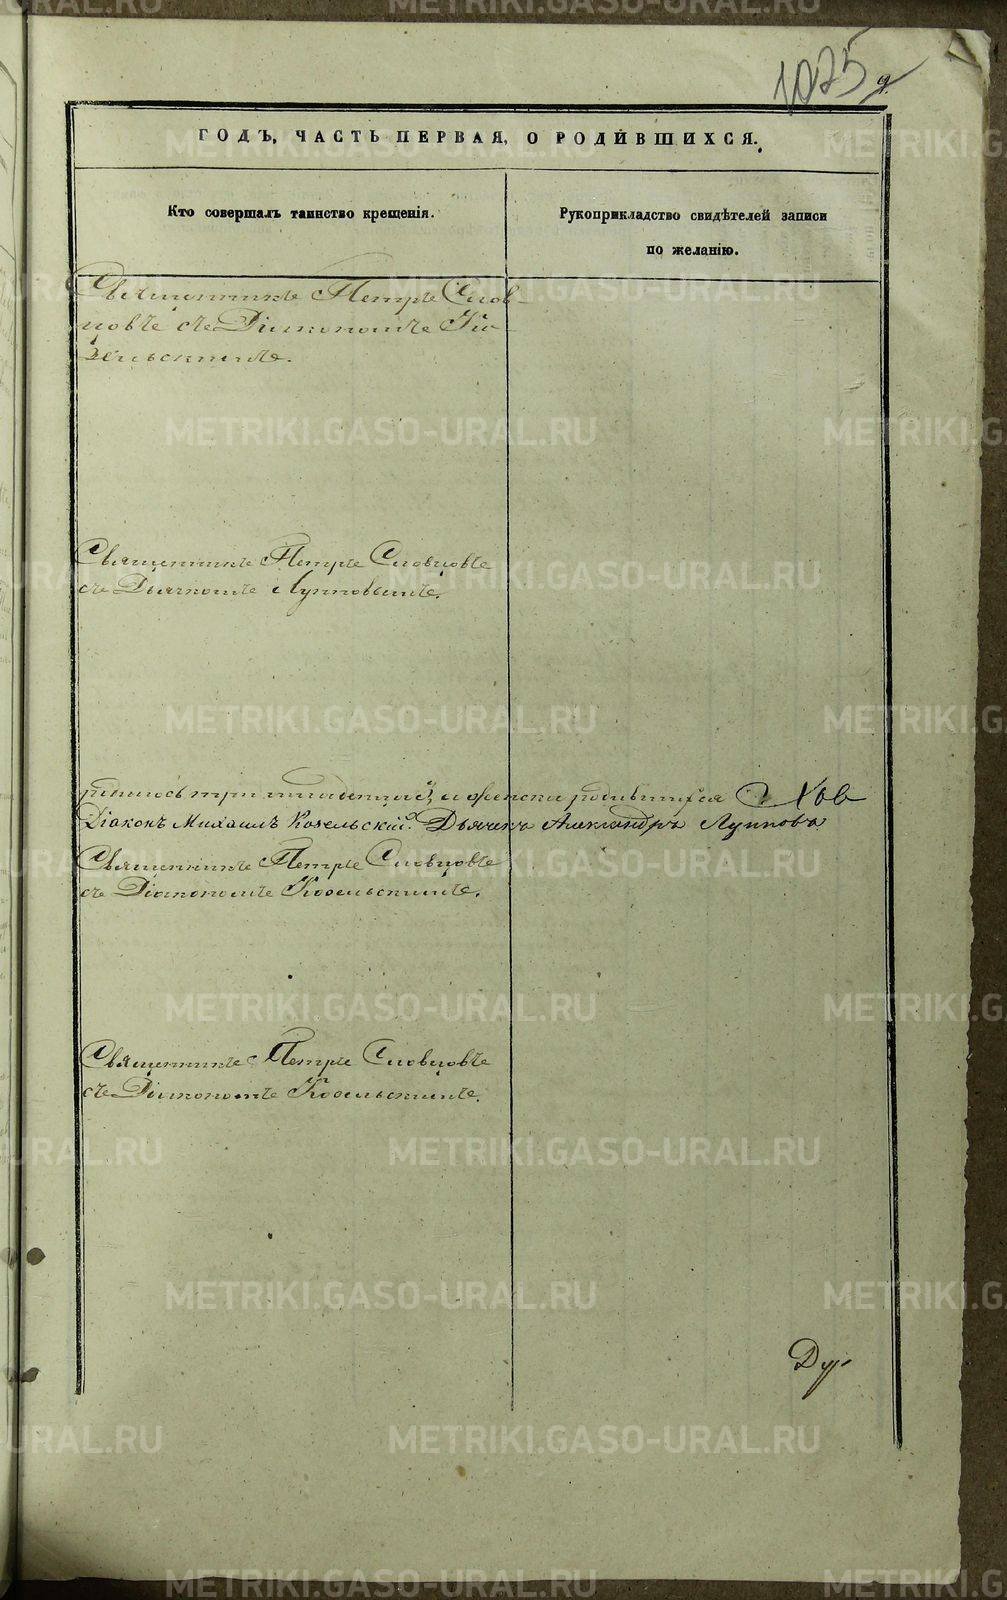 1075
ГОДЪ, ЧАСТЬ ПЕРВАЯ, О РОДИВШИХСЯ.
Кто совершалъ таинство крещенія.
Рукоприкладство свидѣтелей записи
по желанію.
Священникъ Петръ Словцовъ
съ Діакономъ Ко-
зельскимъ.
Священникъ Петръ Словцовъ
съ Дьячкомъ Лупповымъ.
три младенца, а женска родившихся
Діаконъ Михаилъ Козельскій. Дьячекъ Александръ Лупповъ
Священникъ Петръ Словцовъ
съ Діакономъ Козельскимъ.
Священникъ Петръ Словцовъ
съ Діакономъ Козельскимъ.
METRIKI.GASO-URAL.RU